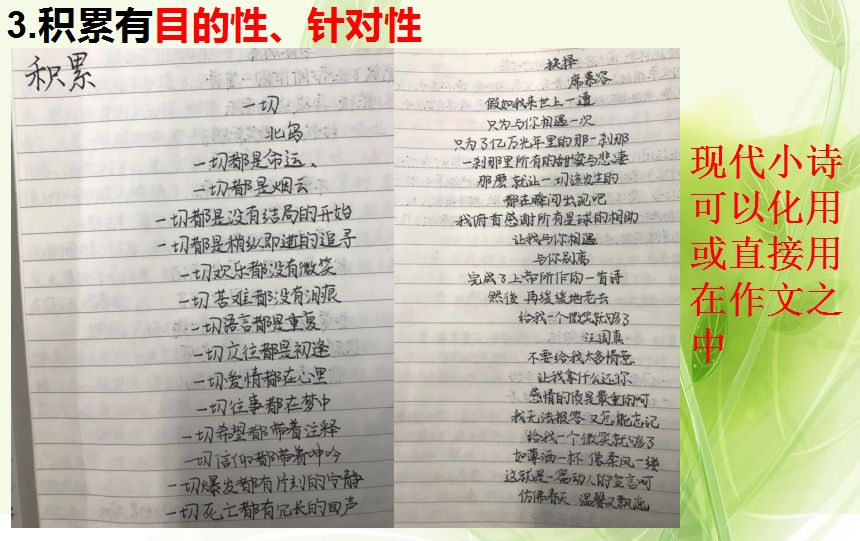 3.积累有目的性、针对性
积累
一切
北岛
一切都是命运、
一切都是烟云
一切都是没有结局的开始
一切都是稍纵即逝的追寻
一切欢乐都没有微笑
一切苦难都没有泪痕
一切语言都是重复
一切交往都是初逢
一切爱情都在心里
一切往事都在梦中
一切希望都带着注释
一切信仰都带着呻吟
一切爆发都有片刻的冷静
一切死亡都有冗长的回声
抉择
席慕容
假如我来世上一遭
只为与你相遇一次
只为了亿万光年里的那一刹那
一刹那里所有的甜蜜与悲凄
那麼就让一切该发生的
都在瞬间出现吧
我俯首感谢所有星球的相助
让我与你相遇
与你别离
完成了上帝所作的一首诗
然後 再缓缓地老去
给我一个微笑就够了
汪国真
不要给我太多情意
让我拿什么还你
感情的债是最重的呵
我无法报答 又怎能忘记
给我一个微笑就够了
如薄酒一杯 像柔风一缕
这就是一篇动人的宣言呵
仿佛春天 温馨又飘逸
现代小诗
可以化用
或直接用
在作文之
中